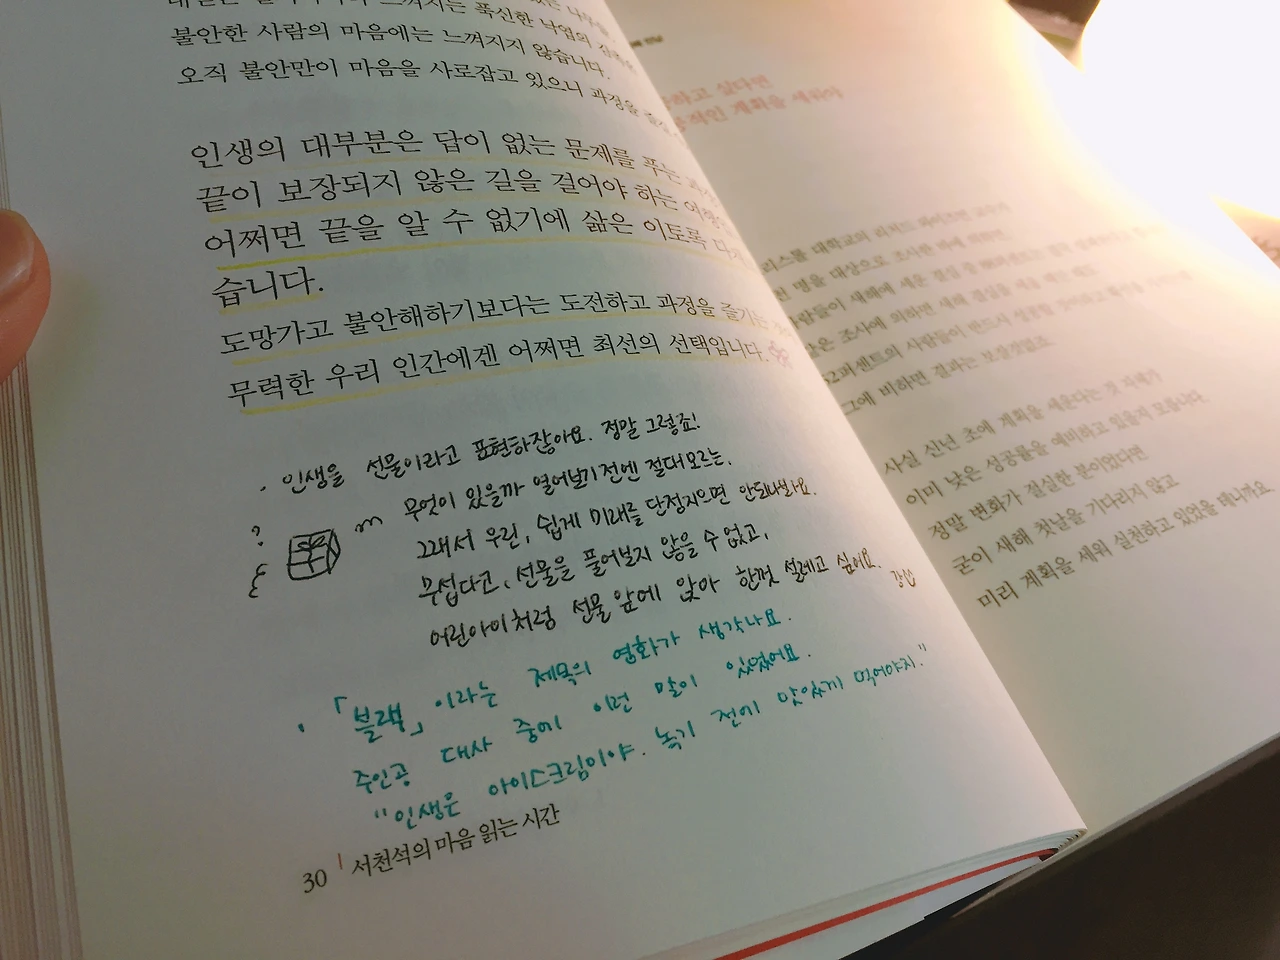 느껴지는 푹신한 낙엽의
불안한 사람의 마음에는 느껴지지 않습니다.
오직 불안만이 마음을 사로잡고 있으니 과정을
인생의 대부분은 답이 없는 문제를 푸는
끝이 보장되지 않은 길을 걸어야 하는
어쩌면 끝을 알 수 없기에 삶은 이토록
습니다.
도망가고 불안해하기보다는 도전하고 과정을 즐기는
무력한 우리 인간에겐 어쩌면 최선의 선택입니다.
· 인생을 선물이라고 표현하잖아요. 정말 그렇죠!
무엇이 있을까 열어보기 전엔 절대 모르는.
그래서 우린, 쉽게 미래를 단정지으면 안되나봐요.
?
무섭다고, 선물을 풀어보지 않을 수 없고,
어린아이처럼 선물 앞에 앉아 한껏 설레고 싶어요.
· 「블랙」이라는 제목의 영화가 생각나요.
주인공 대사 중에 이런 말이 있었어요.
"인생은 아이스크림이야. 녹기 전에 맛있게 먹어야지."
30 | 서천석의 마음 읽는 시간
하고 싶다면
적인 계획을 세워라
대학교의 리처드
명을 대상으로 조사한 바에 의하면
사람들이 새해에 세운 결심 중
같은 조사에 의하면 새해 결심을
52퍼센트의 사람들이 반드시 성공할
그에 비하면 결과는 보잘것없죠.
사실 신년 초에 계획을 세운다는 것 자체가
이미 낮은 성공률을 예비하고 있을지 모릅니다.
정말 변화가 절실한 분이었다면
굳이 새해 첫날을 기다리지 않고
미리 계획을 세워 실천하고 있었을 테니까요.